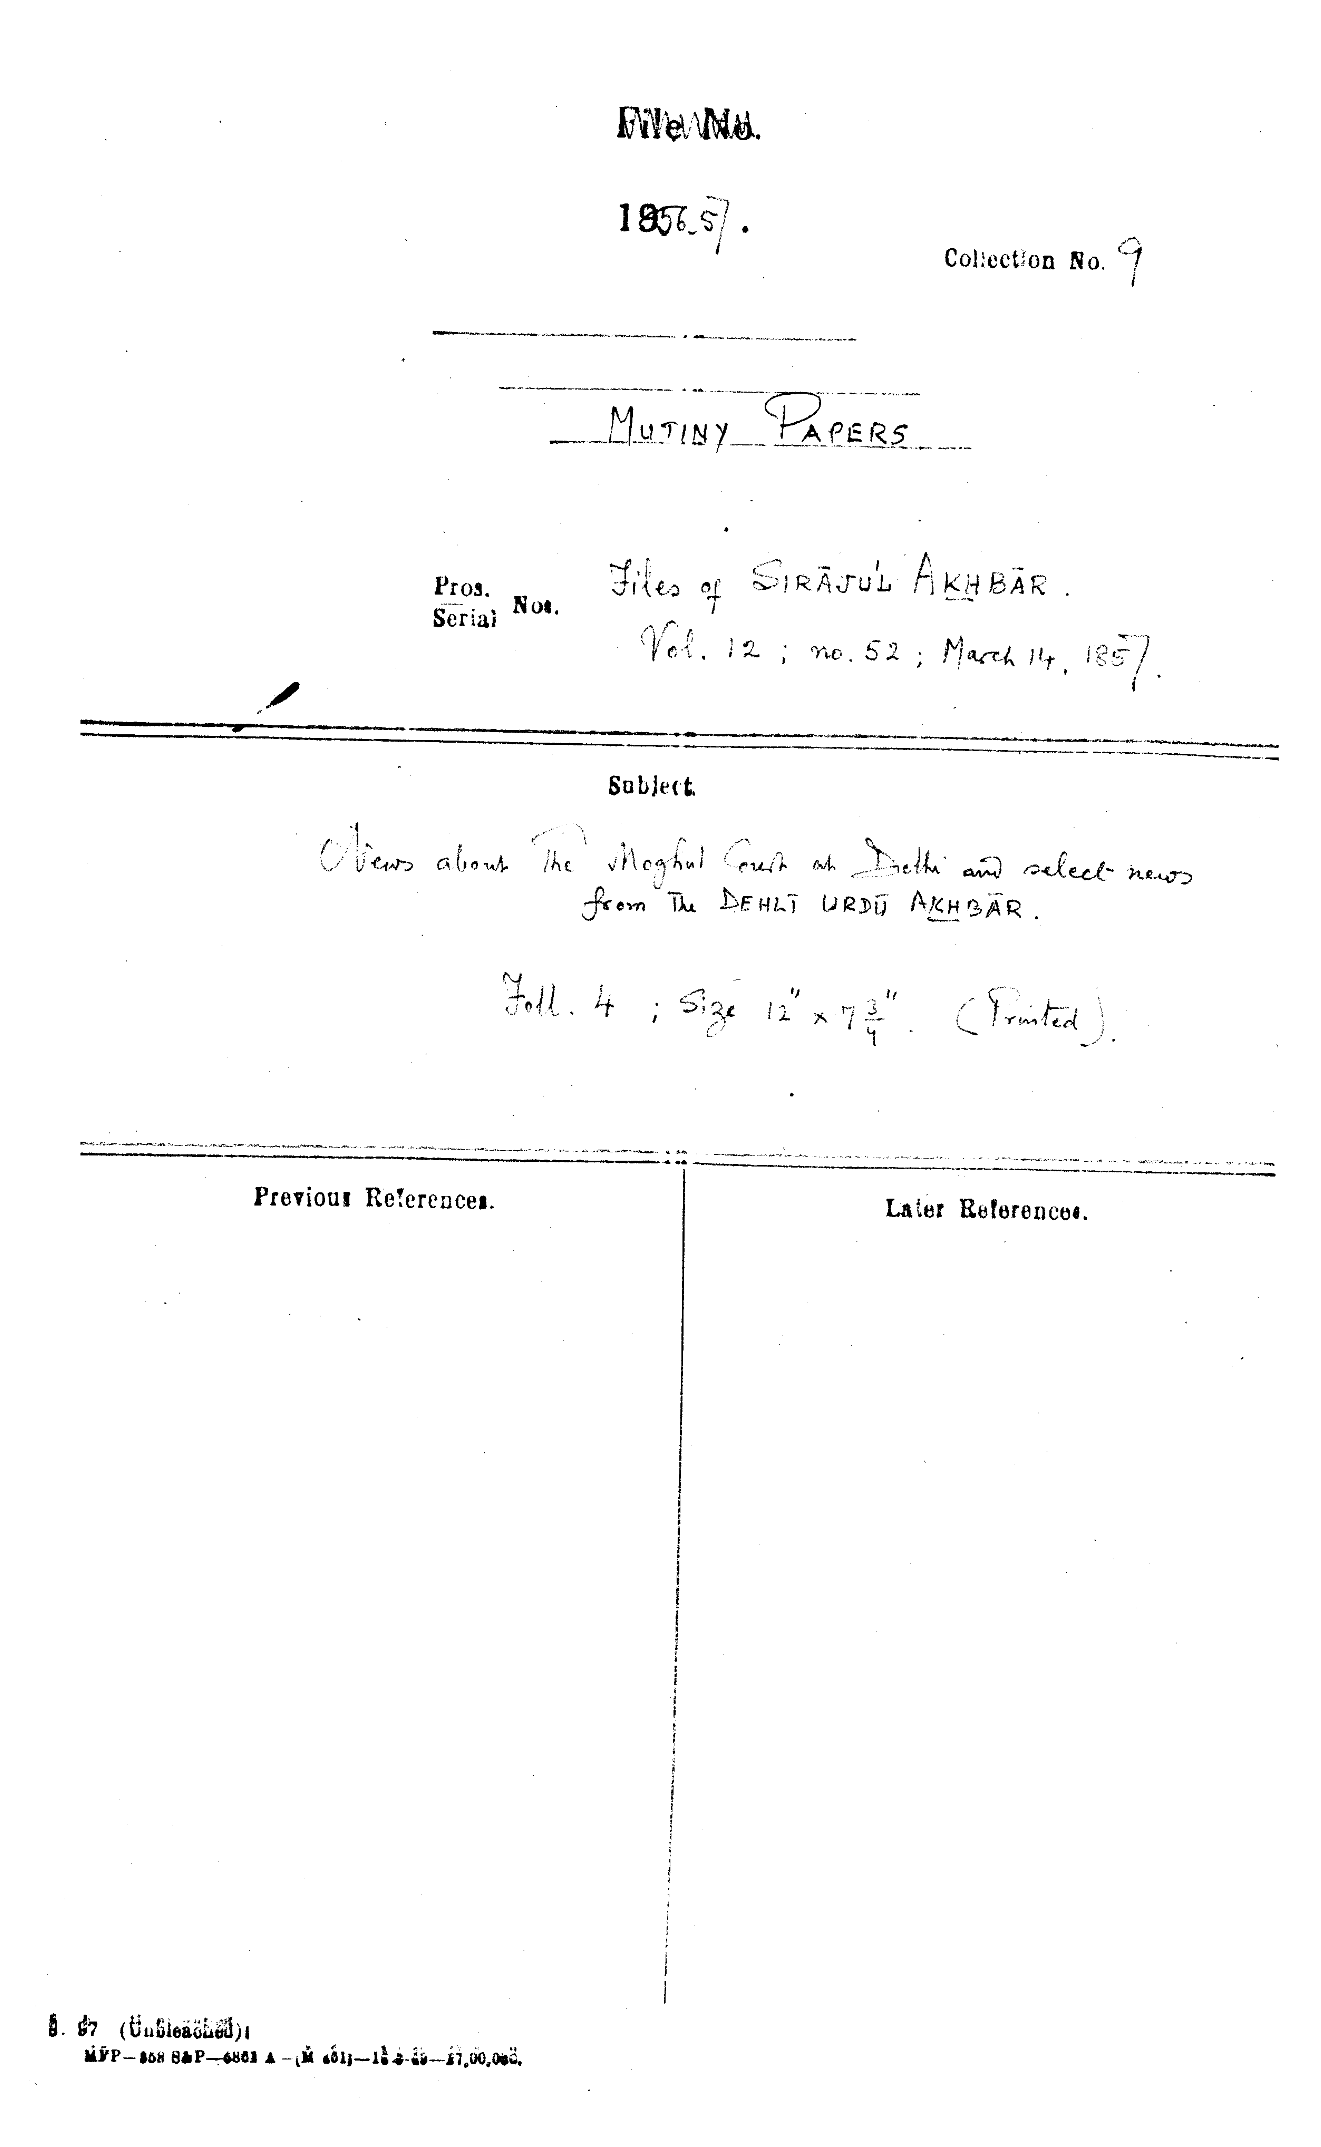 File No.
1856-57.
Collection No. 9
MUTINY PAPERS
Pros.
Serial Nos.
Files of SIRĀJU'L AKHBĀR.
Vol. 12 ; no. 52 ; March 14, 1857.
Subject.
News about The Moghul Court at Delhi and select news
from The DEHLĪ URDŪ AKHBĀR.
Foll. 4 ; Size 12" x 7 3/4". (Printed).
Previous References.
Later References.
(Unbleached)